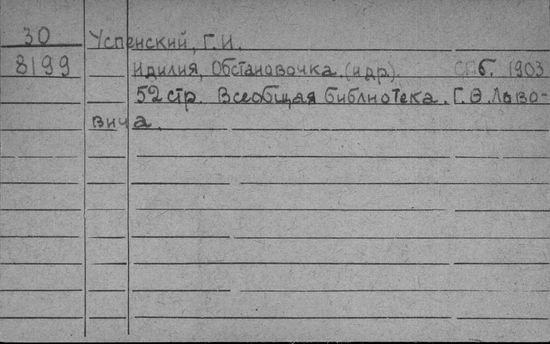 30 Успенский, Г. И.
8199 Идилия, Обстановочка. (и др.) СПб. 1903
52 стр. Всеобщая библиотека. Г. Ф. Льво-
вича.